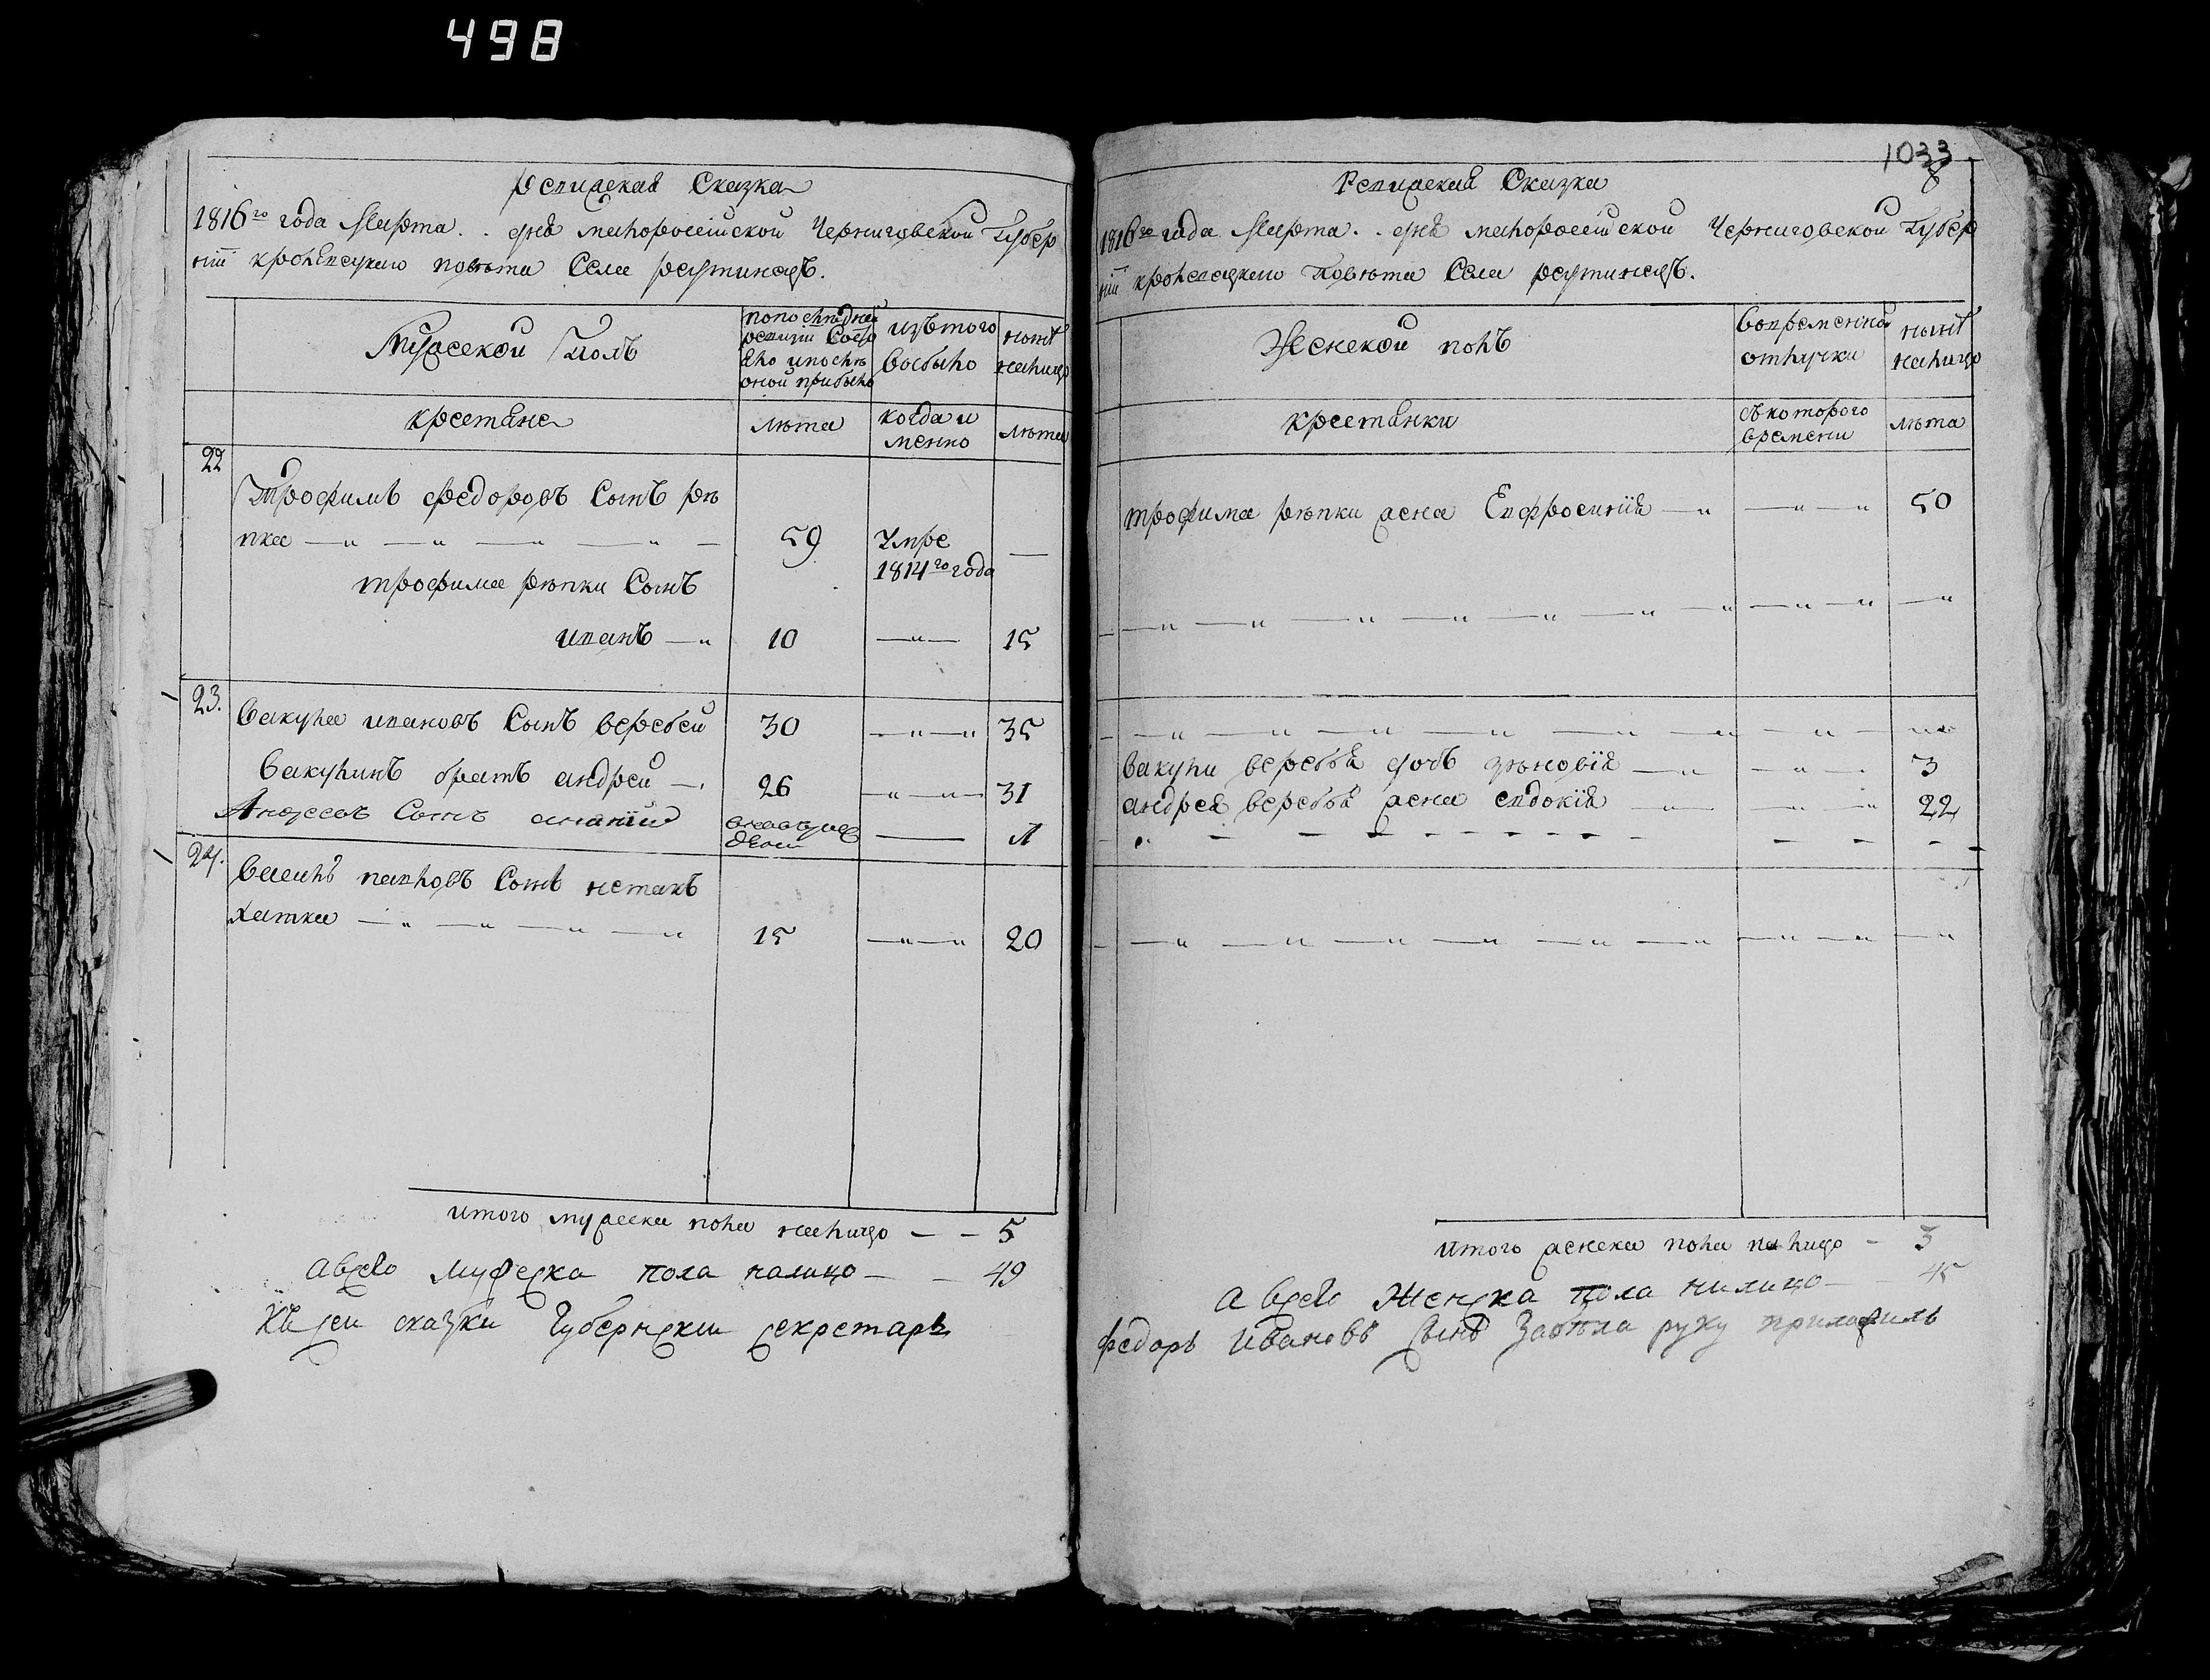 498
Ревиская Сказка
1816го года Марта . . дня малоросiйской Черниговской Губер
нiи кролевецкаго повѣта Села реутинецъ.
Мужеской Полъ
попоследней
ревизiи Состо
яло ипослѣ
оной прибыло
изътого
Выбыло
нынѣ
налицо
крестяне
лѣта
когда и
менно
лѣта
22
Трофимъ федоровъ Сынъ рѣ
пка — „ — „ — „ — „ —
59
Умре
1814го года
—
трофима рѣпки Сынъ
иванъ — „
10
— „ —
15
23.
Вакула ивановъ Сынъ веребей
30
— „ — „
35
Вакулинъ братъ андрей —
26
— „ — „ —
31
Андреевъ Сынъ ананiй
—
1
24.
Василь павловъ Сынъ нетакъ
хатка — „ — „ — „ — „
15
— „ — „
20
итого мужеска пола налицо — — 5
а всего мужеска пола налицо — — 49
Къ сей скаски Губернски секретарь
1033
8
Ревиская Сказка
1816го года Марта . . дня малоросiйской Черниговской Губер
нiи кролевецкаго Повѣта Села реутинецъ.
Женской полъ
Вовременной
отлучки
нынѣ
налицо
крестянки
съкоторого
времени
лѣта
трофима рѣпки жена Евфросинiя — „
— „ — „
50
Вакули веребья дочь зѣновiя — „
— „ —
3
андрея веребья жена евдокiя — „ —
— „ — „
22
итого женска пола налицо — 3
а всего Женска пола налицо — — 45
федоръ Ивановъ сынъ Забѣла руку приложилъ